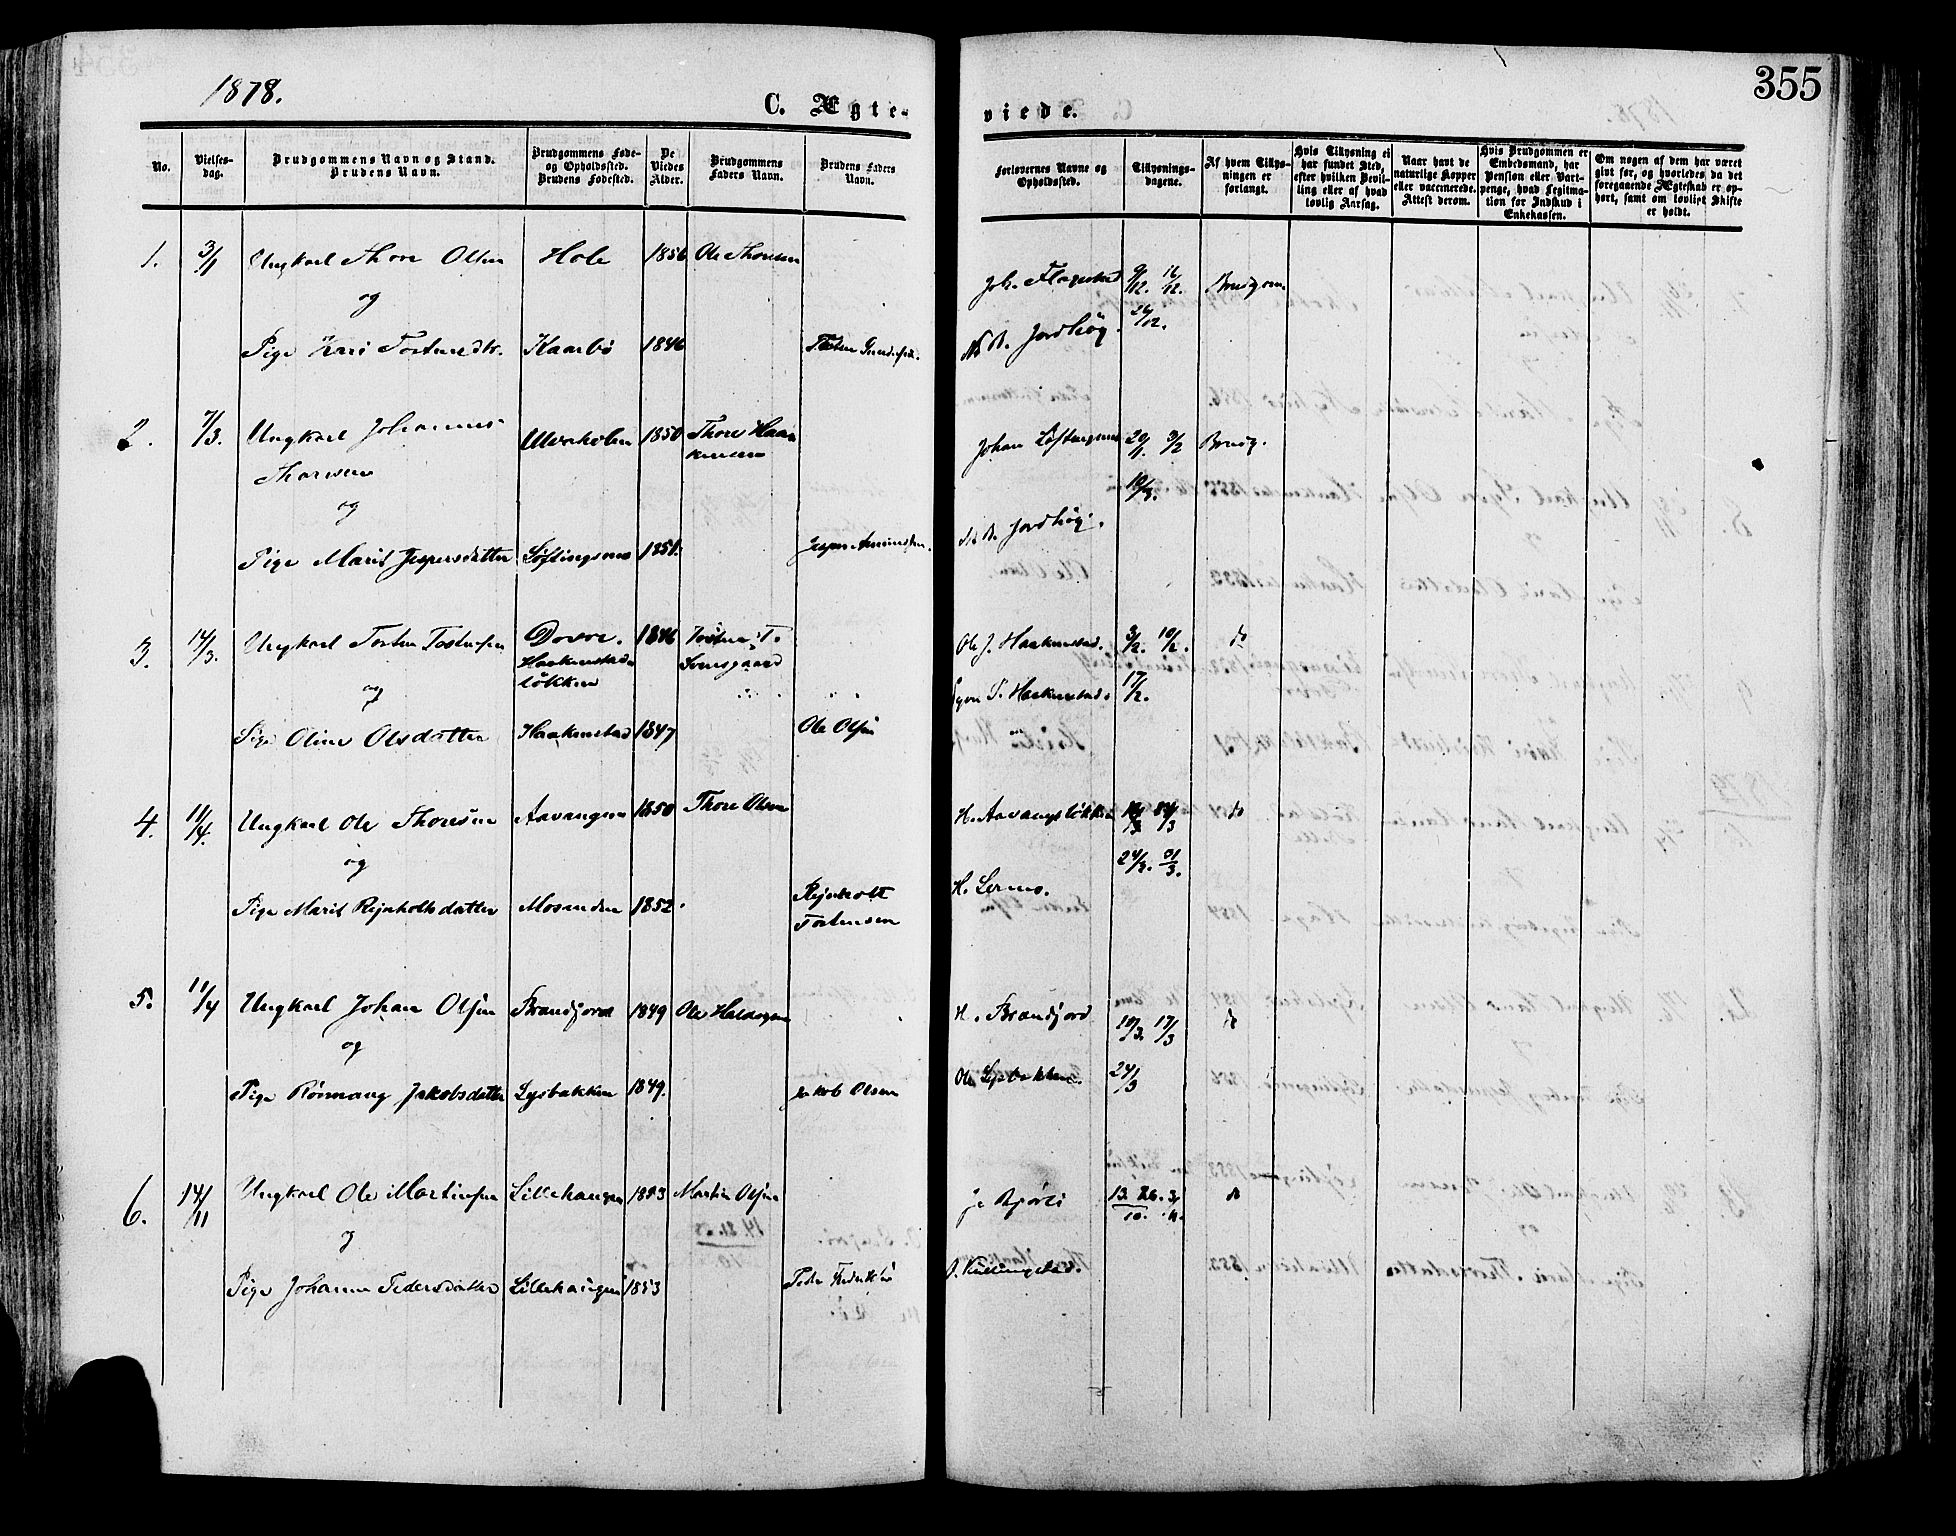 1878.
355
C. Ægte-
viede.
No.
Vielses-
dag.
Brudgommens Navn og Stand.
Brudens Navn.
Brudgommens Føde-
og Opholdssted.
Brudens Fødested.
De
Viedes
Alder.
Brudgommens
Faders Navn.
Brudens Faders
Navn.
Forlovernes Navne og
Opholdssted.
Tillysnings-
dagene.
Af hvem Tillys-
ningen er
forlangt.
Hvis Tillysning ei
har fundet Sted,
efter hvilken Bevil-
ling eller af hvad
lovlig Aarsag.
Naar havt de
naturlige Kopper
eller vaccinerede.
Attest derom.
Hvis Brudgommen er
Embedsmand, har
Pension eller Vart-
penge, hvad Legitima-
tion for Indskud i
Enkekassen.
Om nogen af dem har været
givt før, og hvorledes da det
foregaaende Ægteskab er op-
hørt, samt om lovligt Skifte
er holdt.
1. 3/1 Ungkarl Thore Olsen Hole 1856 Ole Thoresen
og
Pige Kari Tostensdtr. Kaarbø 1846 Tosten
Joh. Flagestad 9/12. 16/12. Brudgom.
26/12.
Jordhøg.
2. 7/3. Ungkarl Johannes Ulvsholen 1850 Thore Haa-
Thoresen kensen
og
Pige Marit Jespersdatter Løftingsmo 1851. Jesper Amundsen.
Johan Løftingsmo 20/1 3/2 Brudg.
10/2.
Jordhøg.
3. 14/3. Ungkarl Tosten Tostensen Dovre. 1846 Tosten T.
Haakenstad- Tornsgaard
løkken
og
Pige Oline Olsdatter Haakenstad 1847 Ole Olsen
Ole J. Haakenstad. 3/2. 10/2. do
Haakenstad. 17/2.
4. 11/4. Ungkarl Ole Thoresen Aavangen 1850 Thore Olsen
og
Pige Marit Rejnholtsdatter Mosenden 1852. Rejnholt
Tostensen
H. Aavangsløkken do
24/3. 31/3.
5. 11/4 Ungkarl Johan Olsen Brandjord 1849 Ole Halvorsen
og
Pige Rønnaug Jakobsdatter Lysbakken 1849. Jakob Olsen
H. Brandjord 10/3. 17/3 do
Ole Lysbakken. 24/3
6. 14/11 Ungkarl Ole Martinsen Lillehaugen 1853 Martin Olsen
og
Pige Johanne Pedersdatter Lillehaugen 1853 Peder
13. 26. do
10.